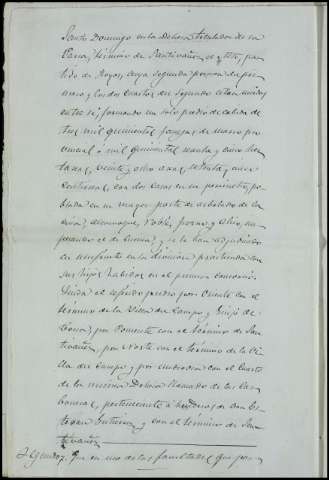 Santo Domingo en la Dehesa titulada de la
termino de Santivañez el
tido de Hoyos, cuya segunda porcion de pri
mero y los dos cuartos del segundo estan unidos
entre si, formando un solo predio de cabida de
tres mil quinientas fanegas de marco pro
vincial ó mil quinientas
areas, veinte y ocho areas, setenta y cinco
centiareas, con dos casas en su perimetro, po
blada en su mayor parte de arbolado de
encina, alcornoque, roble,
de encina; y se le han adjudicado
en la division practicada con
sus hijos habidos en el primer
Linda el referido predio por Oriente con el
término de la Villa del Campo y Guijo de
Coria; por Poniente con el término de San
tivañez, por Norte con el término de la Vi
lla del Campo; y por mediodia con el Cuarto
de la misma Dehesa llamado de las Ca
, perteneciente á herederos de Don Es
tevan Gutierrez y con el término de San
tivañez
Segundo; Que en uso de las facultades que por